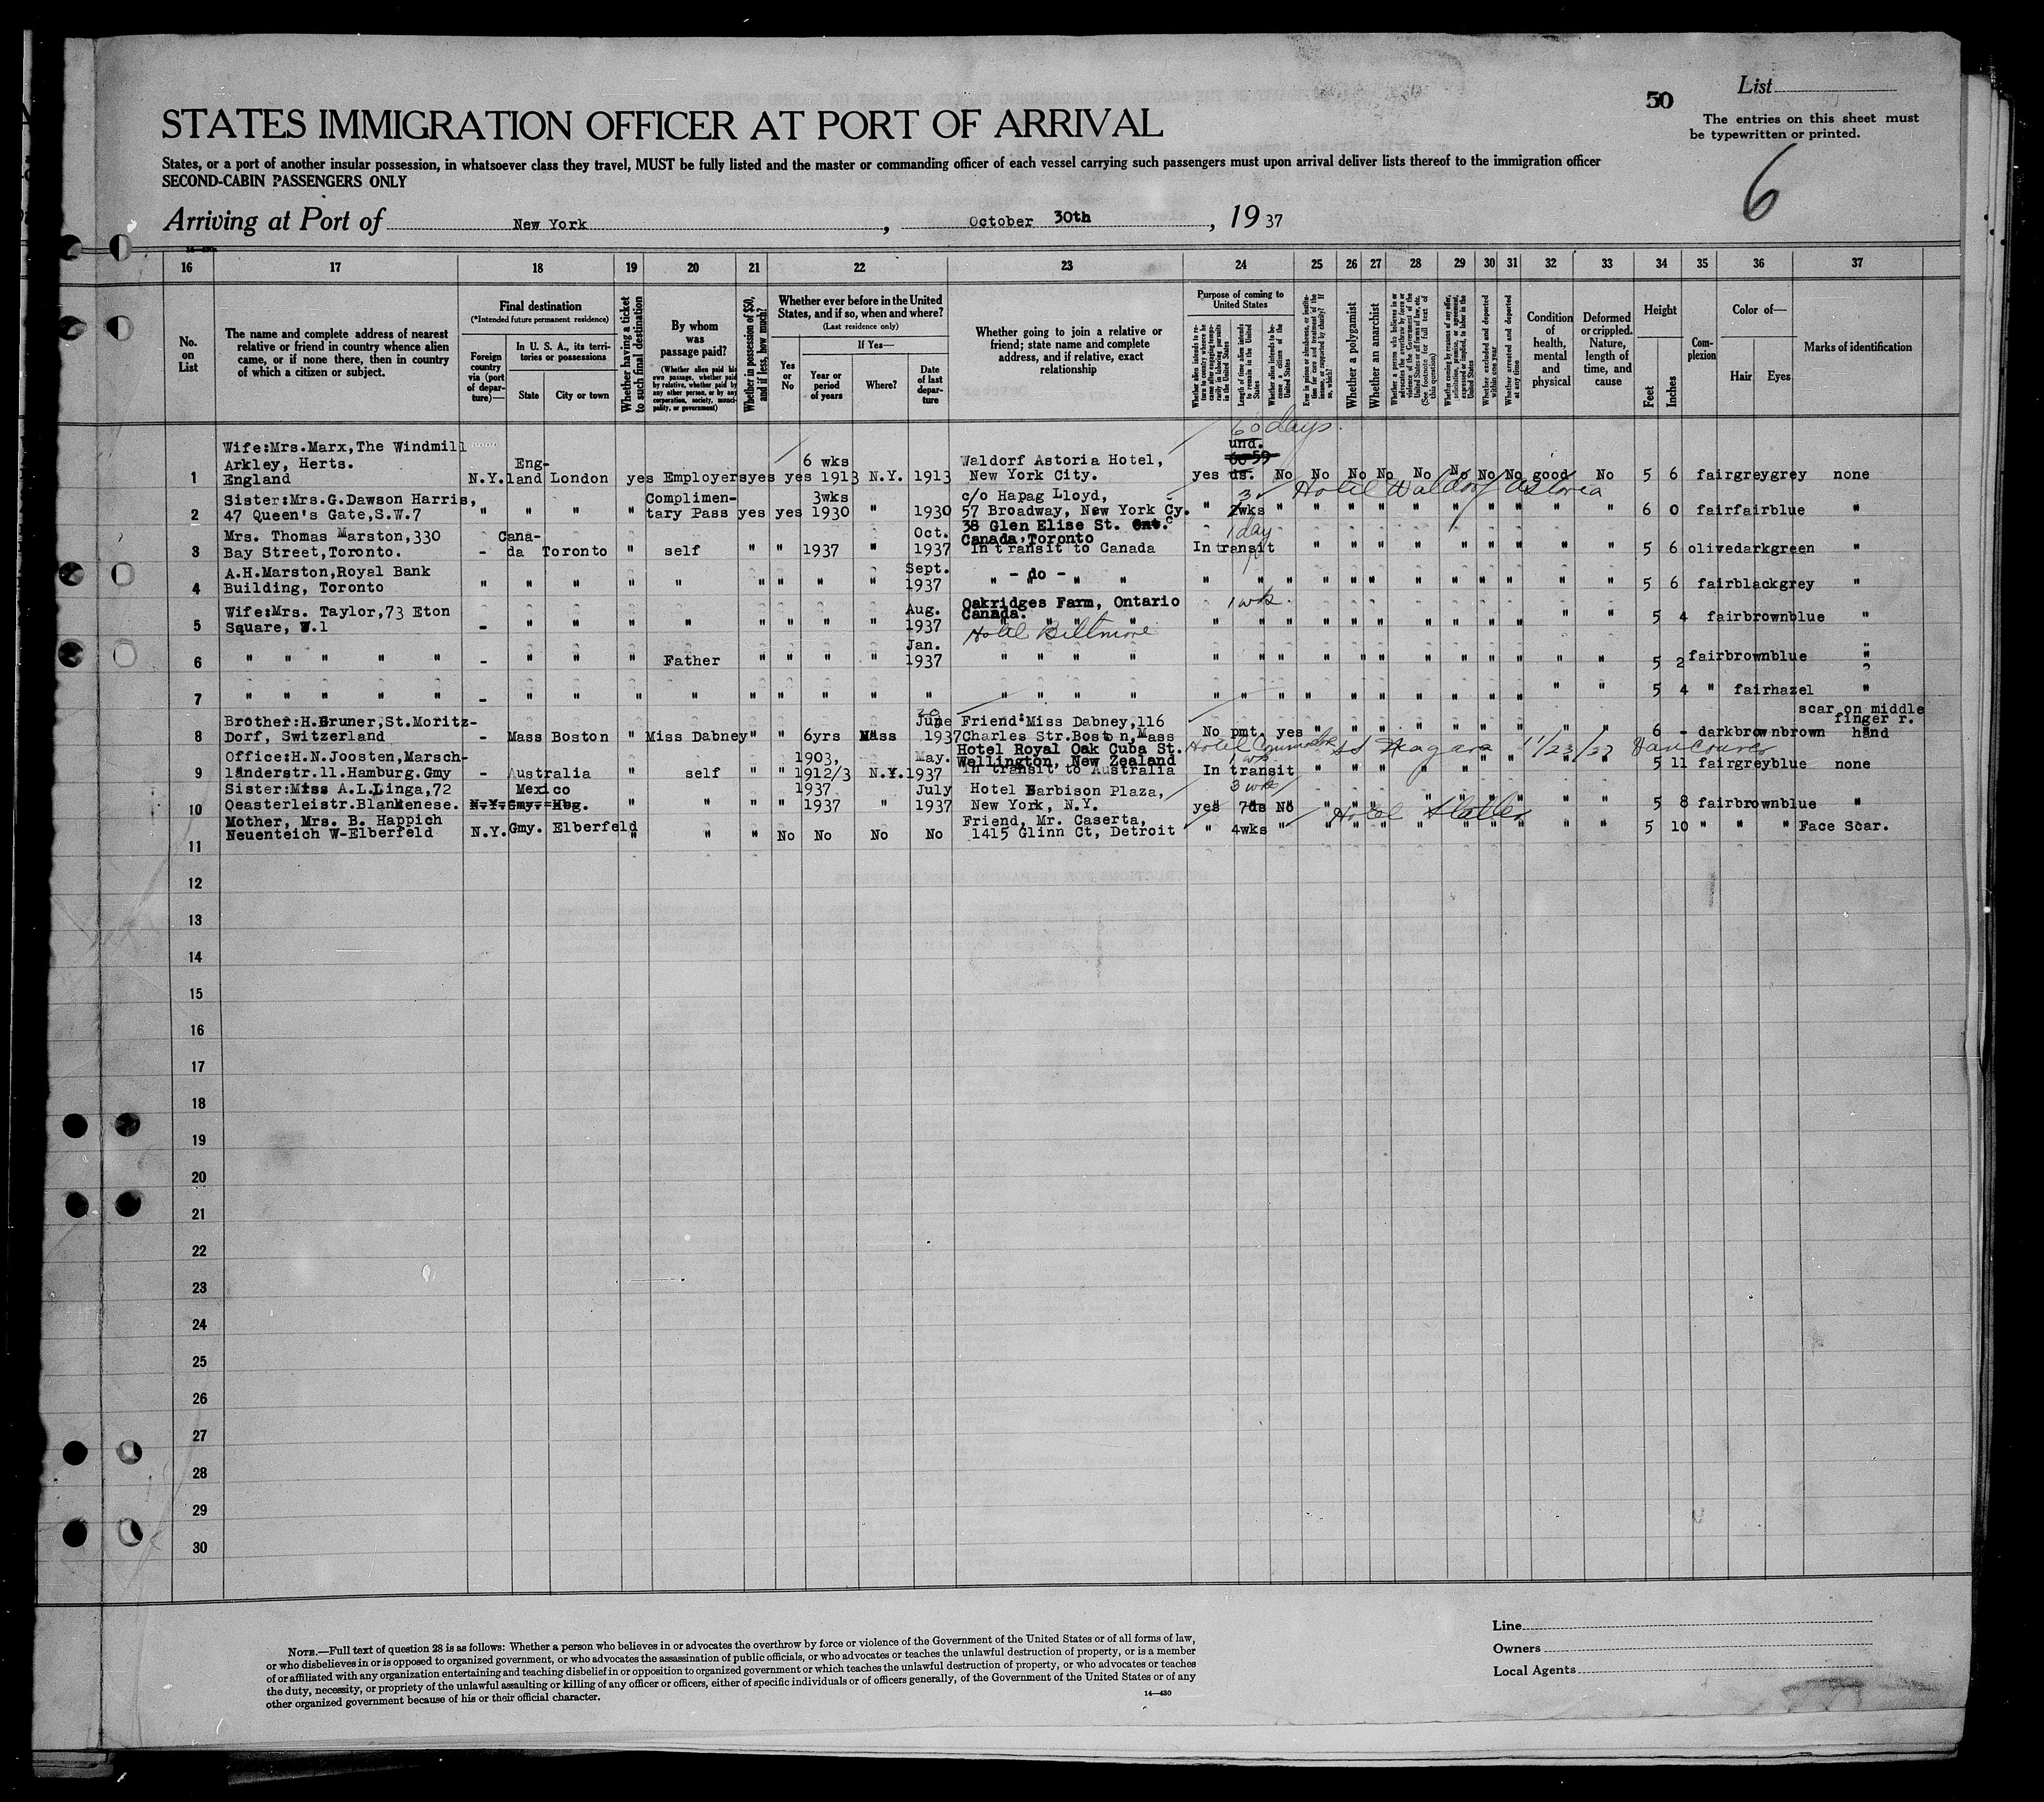 List
50
The entries on this sheet must
be typewritten or printed.
STATES IMMIGRATION OFFICER AT PORT OF ARRIVAL
States, or a port of another insular possession, in whatsoever class they travel, MUST be fully listed and the master or commanding officer of each vessel carrying such passengers must upon arrival deliver lists thereof to the immigration officer
SECOND-CABIN PASSENGERS ONLY
6
Arriving at Port of New York, October 30th, 1937
16 17 18 19 20 21 22 23 24 25 26 27 28 29 30 31 32 33 34 35 36 37
No. on List
The name and complete address of nearest relative or friend in country whence alien came, or if none there, then in country of which a citizen or subject.
Final destination
(*Intended future permanent residence)
Foreign country via (port of departure)—
In U. S. A., its territories or possessions
State
City or town
Whether having a ticket to such final destination
By whom was passage paid?
(Whether alien paid his own passage, whether paid by relative, whether paid by any other person, or by any corporation, society, municipality, or government)
Whether in possession of $50, and if less, how much?
Whether ever before in the United States, and if so, when and where?
(Last residence only)
Yes or No
If Yes—
Year or period of years
Where?
Date of last departure
Whether going to join a relative or friend; state name and complete address, and if relative, exact relationship
Purpose of coming to United States
Whether alien intends to return to country whence he came after engaging temporarily in laboring pursuits in the United States
Length of time alien intends to remain in the United States
Whether alien intends to become a citizen of the United States
Ever in prison or almshouse, or institution for care and treatment of the insane, or supported by charity? If so, which?
Whether a polygamist
Whether an anarchist
Whether a person who believes in or advocates the overthrow by force or violence of the Government of the United States or all forms of law, etc. (See footnote for full text of this question)
Whether coming by reason of any offer, solicitation, promise, or agreement, expressed or implied, to labor in the United States
Whether excluded and deported within one year
Whether arrested and deported at any time
Condition of health, mental and physical
Deformed or crippled. Nature, length of time, and cause
Height
Feet
Inches
Complexion
Color of—
Hair
Eyes
Marks of identification
60 days
Wife:Mrs.Marx,The Windmill und.
Arkley, Herts. Eng- 6 wks Waldorf Astoria Hotel,
1 England N.Y. land London yes Employers yes yes 1913 N.Y. 1913 New York City. yes ds. No No No No No No No No good No 5 6 fair grey grey none
Sister:Mrs.G.Dawson Harris, Complimen- 3wks c/o Hapag Lloyd, 3 Hotel Waldorf Astoria
2 47 Queen's Gate,S.W.7 " " " " tary Pass yes yes 1930 " 1930 57 Broadway, New York Cy. " wks " " " " " " " " " " 6 0 fair fair blue "
Mrs. Thomas Marston,330 Cana- Oct. 38 Glen Elise St. Canada,Toronto 1 day
3 Bay Street,Toronto. - da Toronto " self " " 1937 " 1937 In transit to Canada In transit " " " " " " " " " " 5 6 olive dark green "
A.H.Marston,Royal Bank Sept. - do -
4 Building, Toronto " " " " " " " " " 1937 " " " " " " " " " " " " " " " " " 5 6 fair black grey "
Wife:Mrs. Taylor,73 Eton Aug. Oakridges Farm, Ontario Canada. 1 wk
5 Square, W.1 - " " " " " " " " 1937 " " " " " " " " " " " " " " " " 5 4 fair brown blue "
Hotel Biltmore
Jan.
6 " " " " " - " " " Father " " " " 1937 " " " " " " " " " " " " " " " " " 5 2 fair brown blue "
7 " " " " " - " " " " " " " " " " " " " " " " " " " " " " " " " " 5 4 " fair hazel "
Brother:H.Bruner,St.Moritz- June Friend:Miss Dabney,116 scar on middle finger r.
8 Dorf, Switzerland - Mass Boston " Miss Dabney " " 6yrs Mass 1937 Charles Str.Boston,Mass No pmt. yes " " " " " " " " " 6 - dark brown brown hand
Office:H.N.Joosten,Marsch- 1903, May. Hotel Royal Oak Cuba St. Wellington, New Zealand Hotel Commodore SS Niagara 11/23/37 Vancouver
9 länderstr.11.Hamburg.Gmy - Australia " self " " 1912/3 N.Y. 1937 In transit to Australia In transit " " " " " " " " " 5 11 fair grey blue none
Sister:Miss A.L.Linga,72 Mexico 1937 July Hotel Barbison Plaza, 3 wks
10 Oeasterleistr.Blankenese. N.Y. Gmy. Hbg. " " " " 1937 " 1937 New York, N.Y. yes 7ds No " " " " " " " " " 5 8 fair brown blue "
Mother, Mrs. B. Happich Friend, Mr. Caserta, Hotel Statler
Neuenteich W-Elberfeld N.Y. Gmy. Elberfeld " " " No No No No 1415 Glinn Ct, Detroit " 4wks " " " " " " " " " " " 5 10 " " " Face Scar.
11
12
13
14
15
16
17
18
19
20
21
22
23
24
25
26
27
28
29
30
NOTE.—Full text of question 28 is as follows: Whether a person who believes in or advocates the overthrow by force or violence of the Government of the United States or of all forms of law,
or who disbelieves in or is opposed to organized government, or who advocates the assassination of public officials, or who advocates or teaches the unlawful destruction of property, or is a member
of or affiliated with any organization entertaining and teaching disbelief in or opposition to organized government or which teaches the unlawful destruction of property, or who advocates or teaches
the duty, necessity, or propriety of the unlawful assaulting or killing of any officer or officers, either of specific individuals or of officers generally, of the Government of the United States or of any
other organized government because of his or their official character.
14—430
Line
Owners
Local Agents